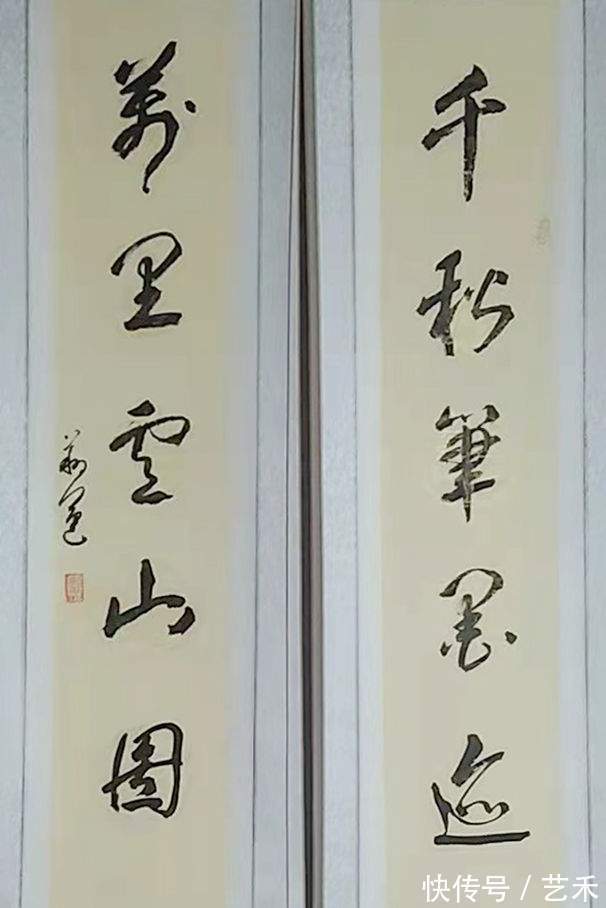 千秋筆墨迹
萬里雲山圖
快传号/艺禾